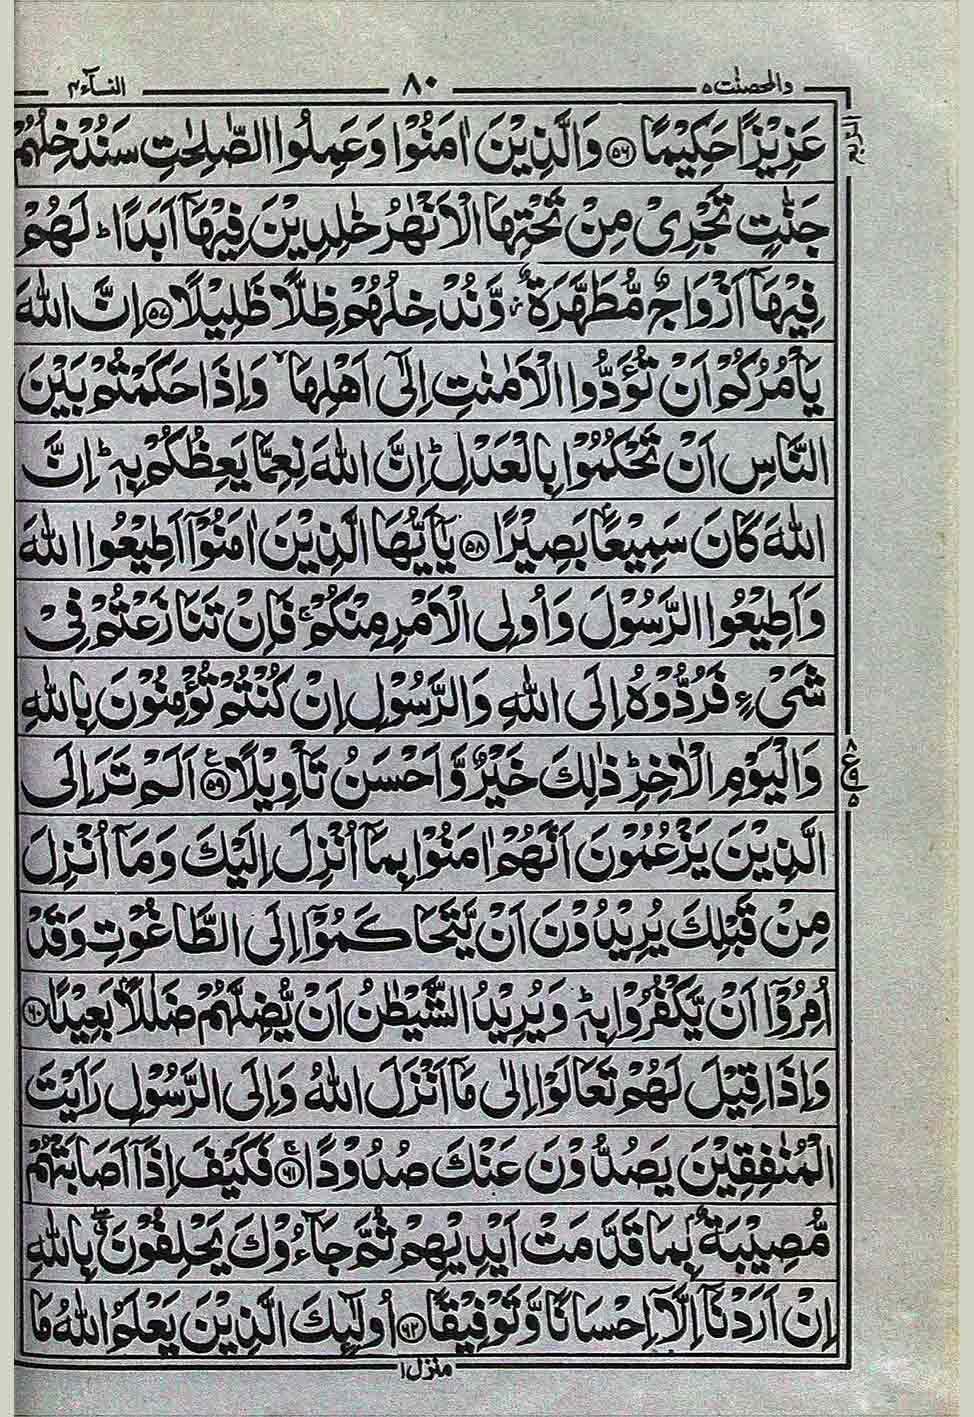 والمحصنت ۵ ۸۰ النسآء ۴
عَزِيْزًا حَكِيْمًا ۵۶ وَالَّذِيْنَ اٰمَنُوْا وَعَمِلُوا الصّٰلِحٰتِ سَنُدْخِلُهُمْ
جَنّٰتٍ تَجْرِيْ مِنْ تَحْتِهَا الْاَنْهٰرُ خٰلِدِيْنَ فِيْهَاۤ اَبَدًا ؕ لَهُمْ
فِيْهَاۤ اَزْوَاجٌ مُّطَهَّرَةٌ ؗ وَّنُدْخِلُهُمْ ظِلًّا ظَلِيْلًا ۵۷ اِنَّ اللّٰهَ
يَاْمُرُكُمْ اَنْ تُؤَدُّوا الْاَمٰنٰتِ اِلٰۤى اَهْلِهَا ۙ وَاِذَا حَكَمْتُمْ بَيْنَ
النَّاسِ اَنْ تَحْكُمُوْا بِالْعَدْلِ ؕ اِنَّ اللّٰهَ نِعِمَّا يَعِظُكُمْ بِهٖ ؕ اِنَّ
اللّٰهَ كَانَ سَمِيْعًۢا بَصِيْرًا ۵۸ يٰۤاَيُّهَا الَّذِيْنَ اٰمَنُوْۤا اَطِيْعُوا اللّٰهَ
وَاَطِيْعُوا الرَّسُوْلَ وَاُولِى الْاَمْرِ مِنْكُمْ ۚ فَاِنْ تَنَازَعْتُمْ فِيْ
شَيْءٍ فَرُدُّوْهُ اِلَى اللّٰهِ وَالرَّسُوْلِ اِنْ كُنْتُمْ تُؤْمِنُوْنَ بِاللّٰهِ
وَالْيَوْمِ الْاٰخِرِ ؕ ذٰلِكَ خَيْرٌ وَّاَحْسَنُ تَاْوِيْلًا ۵۹ اَلَمْ تَرَ اِلَى
الَّذِيْنَ يَزْعُمُوْنَ اَنَّهُمْ اٰمَنُوْا بِمَاۤ اُنْزِلَ اِلَيْكَ وَمَاۤ اُنْزِلَ
مِنْ قَبْلِكَ يُرِيْدُوْنَ اَنْ يَّتَحَاكَمُوْۤا اِلَى الطَّاغُوْتِ وَقَدْ
اُمِرُوْۤا اَنْ يَّكْفُرُوْا بِهٖ ؕ وَيُرِيْدُ الشَّيْطٰنُ اَنْ يُّضِلَّهُمْ ضَلٰلًۢا بَعِيْدًا ۶۰
وَاِذَا قِيْلَ لَهُمْ تَعَالَوْا اِلٰى مَاۤ اَنْزَلَ اللّٰهُ وَاِلَى الرَّسُوْلِ رَاَيْتَ
الْمُنٰفِقِيْنَ يَصُدُّوْنَ عَنْكَ صُدُوْدًا ۶۱ فَكَيْفَ اِذَاۤ اَصَابَتْهُمْ
مُّصِيْبَةٌۢ بِمَا قَدَّمَتْ اَيْدِيْهِمْ ثُمَّ جَآءُوْكَ يَحْلِفُوْنَ بِاللّٰهِ
اِنْ اَرَدْنَاۤ اِلَّاۤ اِحْسَانًا وَّتَوْفِيْقًا ۶۲ اُولٰٓئِكَ الَّذِيْنَ يَعْلَمُ اللّٰهُ مَا
منزل ۱